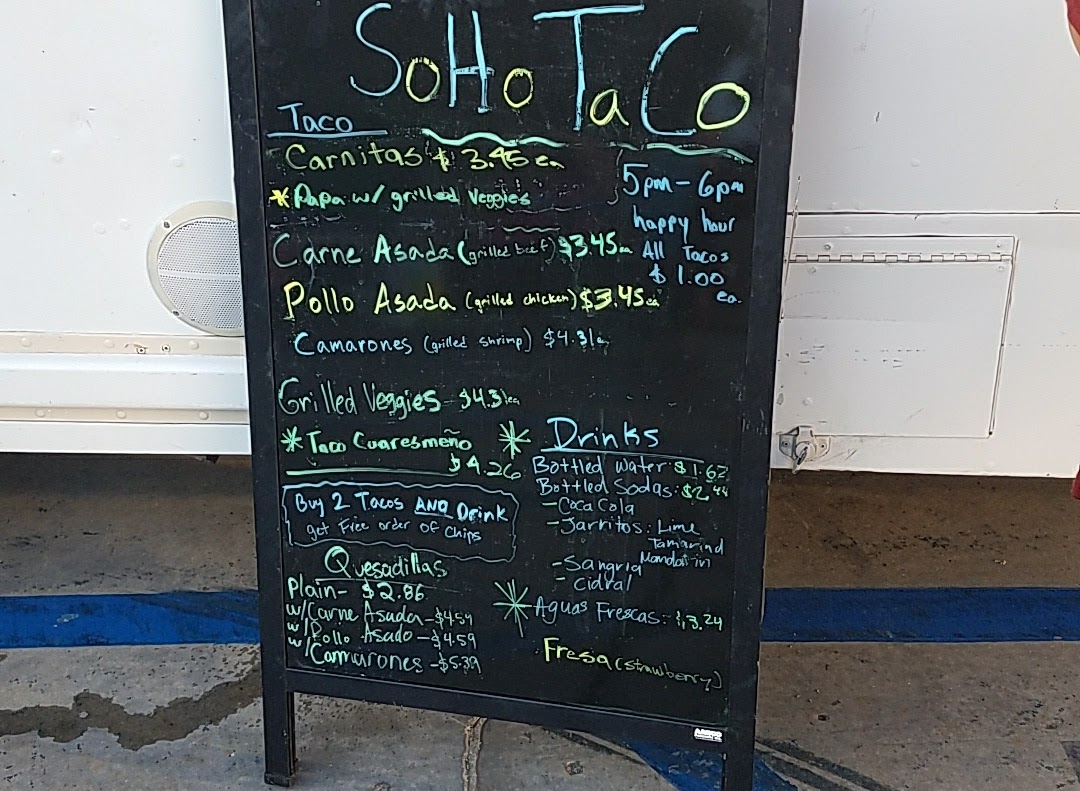 SoHo TaCo
Taco
Carnitas $3.45 ea
*Papa w/ grilled veggies
Carne Asada (grilled beef) $3.45 ea
Pollo Asada (grilled chicken) $3.45 ea
Camarones (grilled shrimp) $4.31 ea
Grilled Veggies - $4.31 ea
* Taco Cuaresmeño
$4.26
5pm - 6pm
happy hour
All Tacos
$1.00
ea.
Buy 2 Tacos AND Drink
get Free order of chips
Quesadillas
Plain - $2.86
w/Carne Asada - $4.59
w/Pollo Asado - $4.59
w/Cammarones - $5.39
Drinks
Bottled Water: $1.62
Bottled Sodas: $2.44
- Coca Cola
- Jarritos: Lime
Tamarind
Mandarin
- Sangria
- Cidral
* Aguas Frescas: $3.24
Fresa (strawberry)